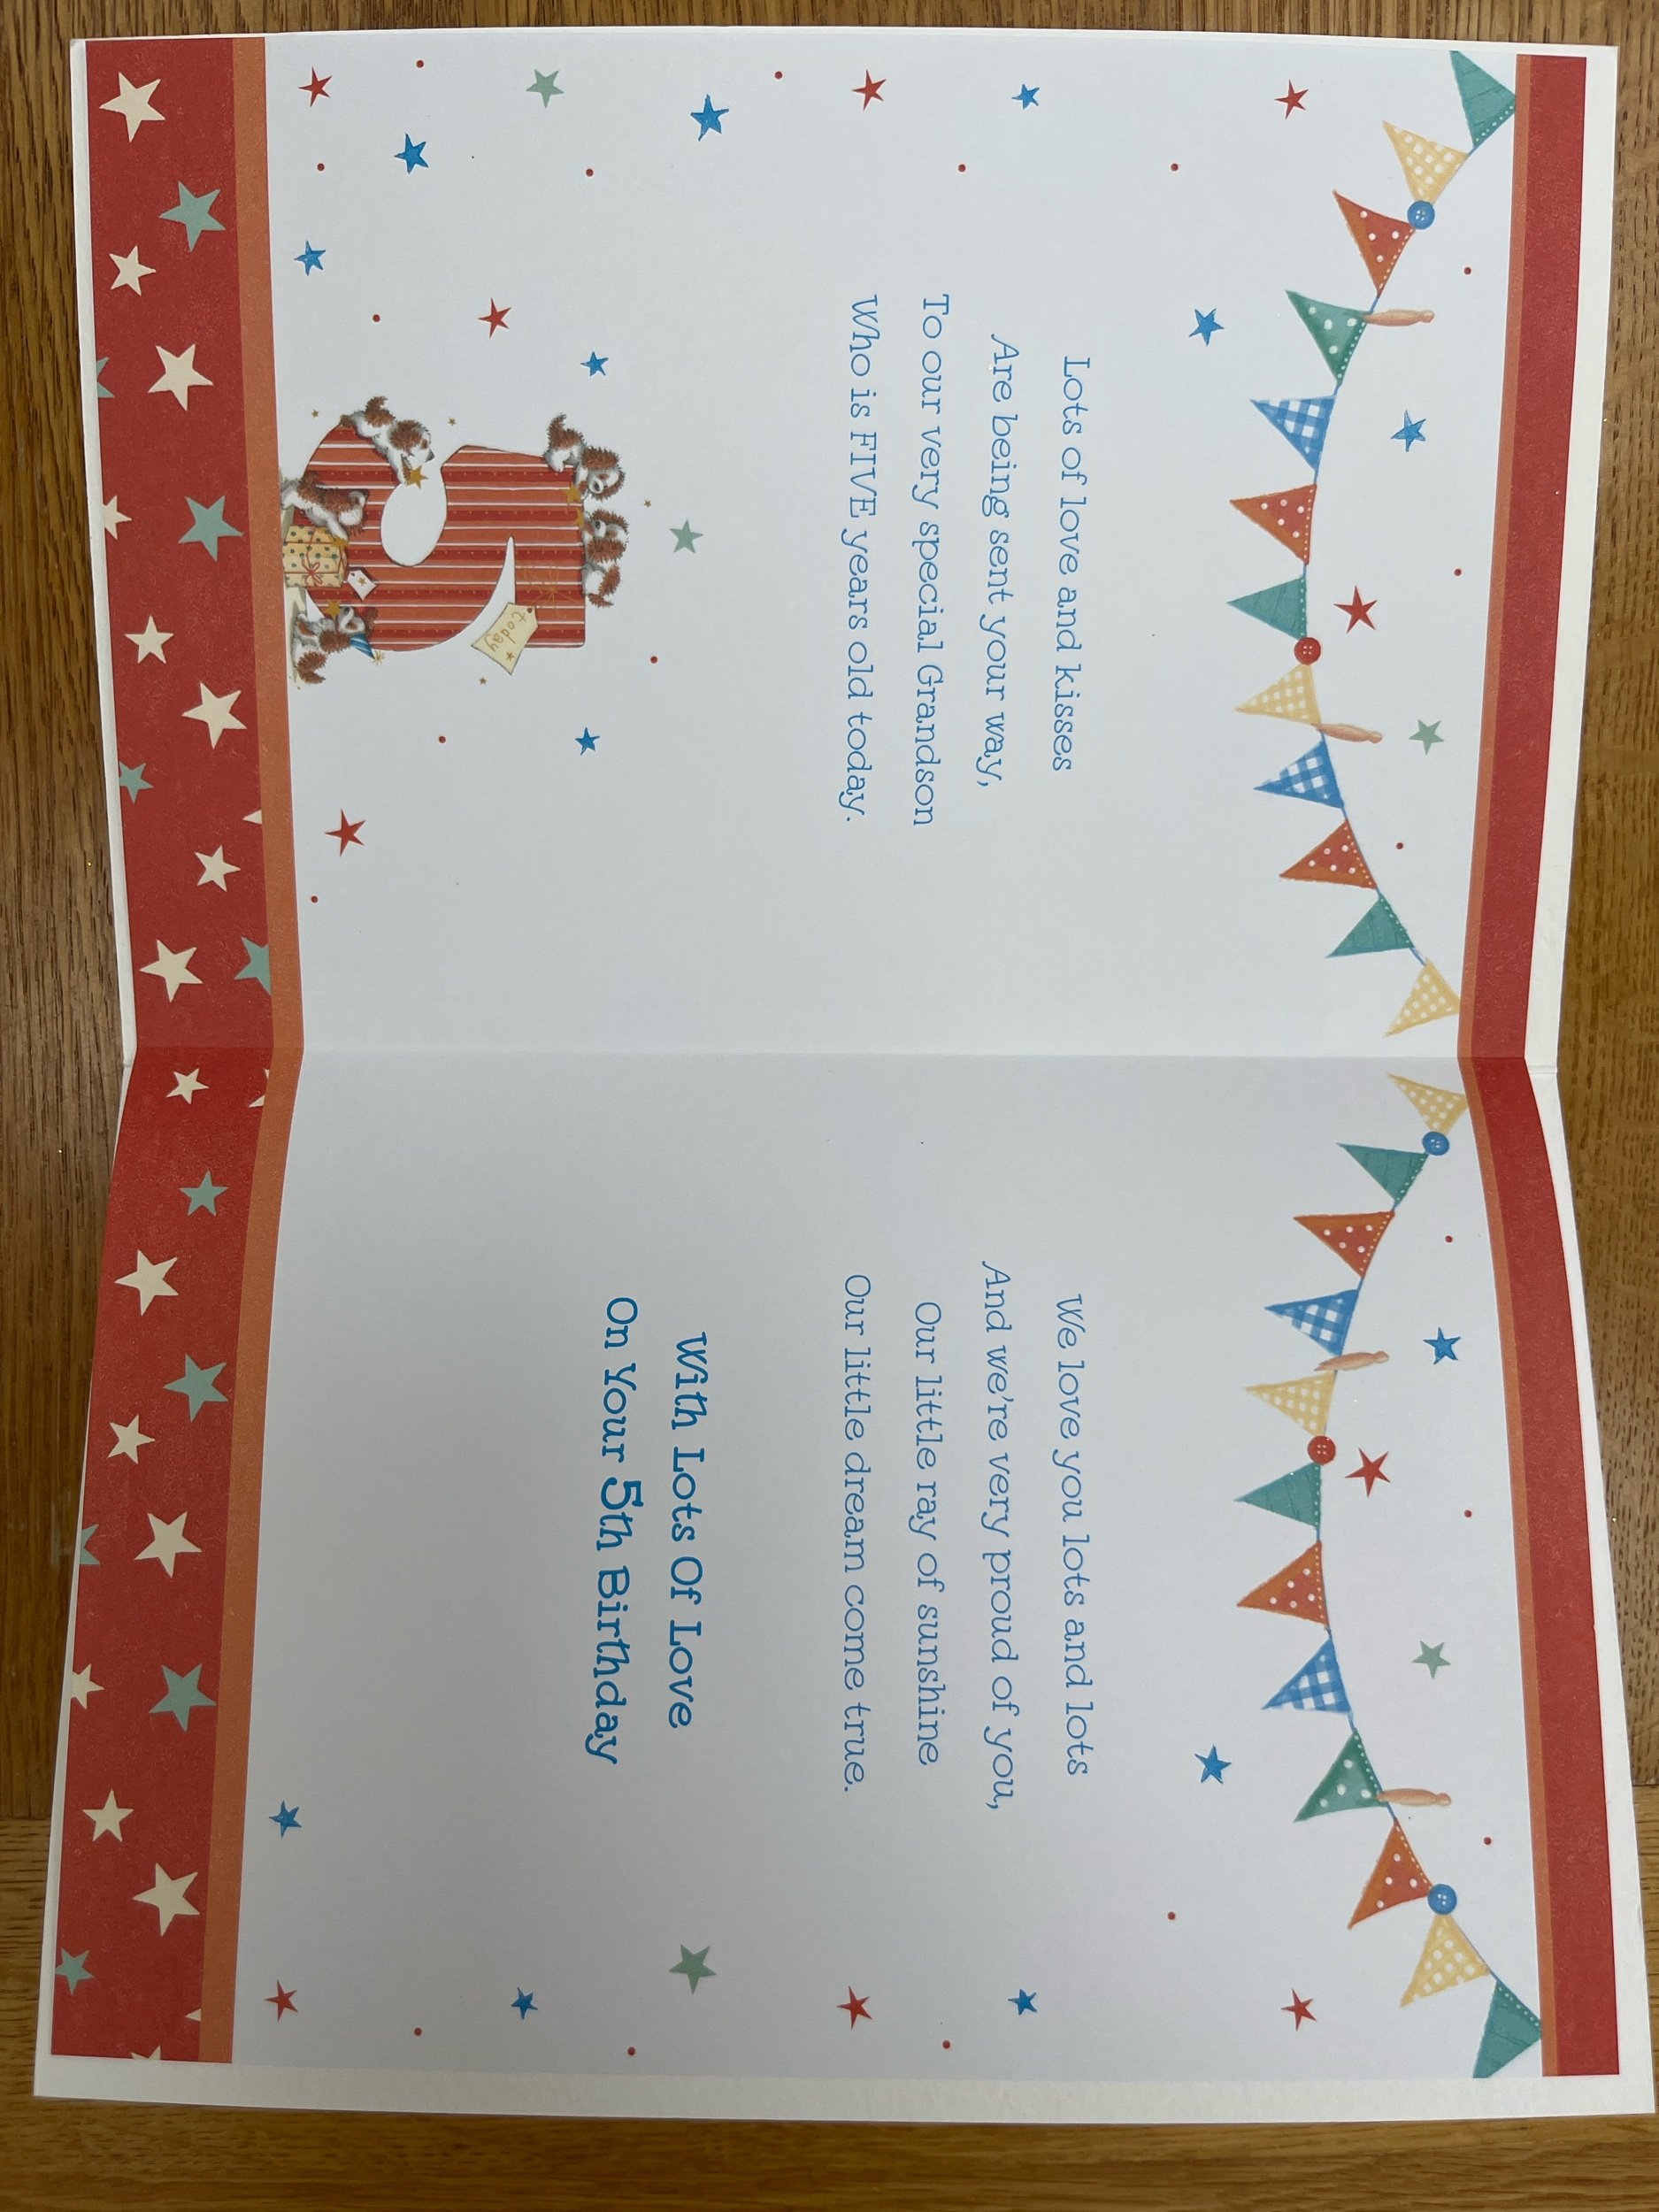 Lots of love and kisses
Are being sent your way,
To our very special Grandson
Who is FIVE years old today.
today
We love you lots and lots
And we're very proud of you,
Our little ray of sunshine
Our little dream come true.
With Lots Of Love
On Your 5th Birthday